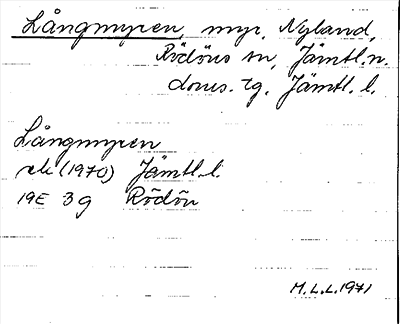 Långmyren, myr, Nyland,
Rödöns sn, Jämtl. n.
doms. tg. Jämtl. l.
Långmyren
ek (1970) Jämtl. l.
19E 3g Rödön
M.L.L. 1971